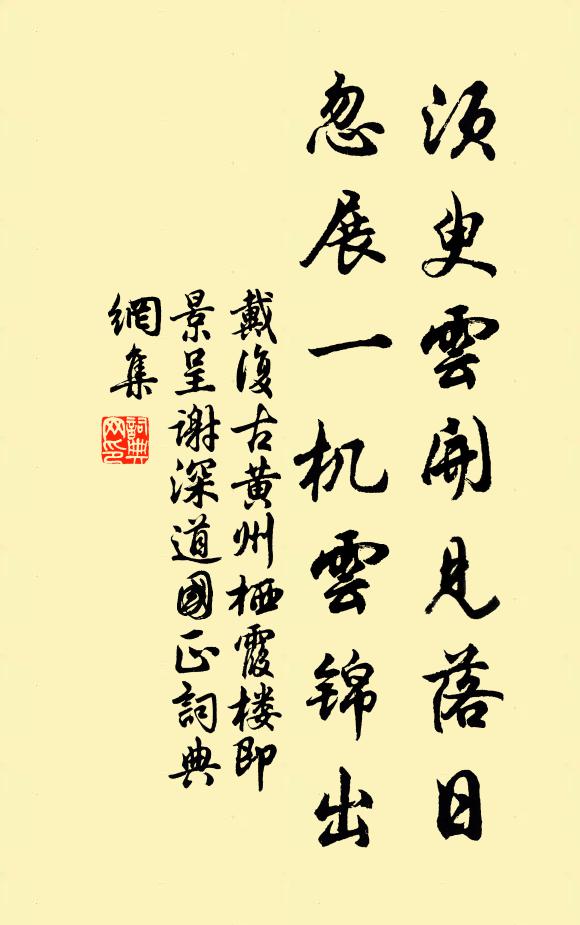 须臾雲開見落日
忽展一机雲锦出
戴復古黄州栖霞楼即
景呈谢深道國正詞典
網集
詞典
网印